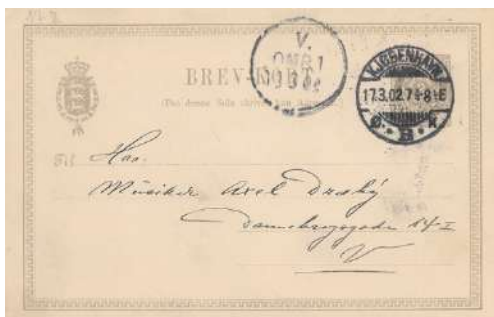 V.
OMB. 1
BREV-KORT.
(Paa denne Side skrives kun Adressen.)
KJØBENHAVN
17.3.02.7¼-8¼E
Ø. B. K
Hrr.
Musiker Axel Draby
Dannebrogsgade 14 I
V